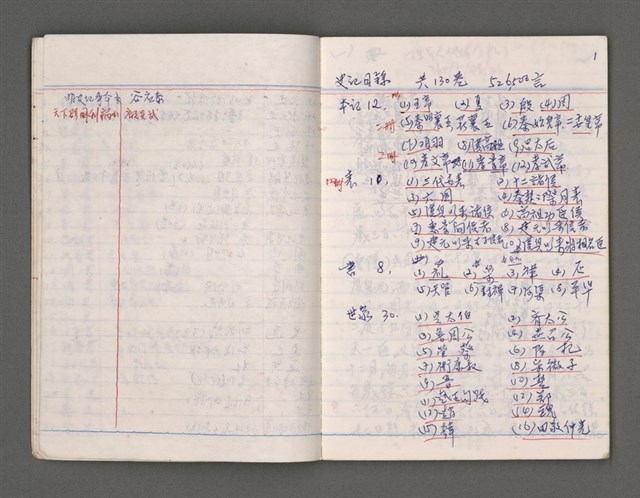 明史紀事本末 谷应泰
天下郡国利病
1
史记目錄 共130卷 526,500言
本记12. (1)五帝 (2)夏 (3)殷 (4)周
(5)秦 襄王 (6)秦始皇、二世皇帝
(7)项羽 (8)漢高祖 (9)吕太后
(10)孝文帝 (11)孝景帝 (12)孝武帝
表 10. (1)三代世表 (2)十二諸侯
(3)六国 (4)秦楚之際月表
(5)漢兴以来诸侯 (6)高祖功臣侯
(7)惠景间侯者 (8)建元以来侯者
(9)建元以来王子侯 (10)漢兴以来将相名臣
書 8. (1)礼 (2)樂 (3)律 (4)历
(5)天官 (6)封禅 (7)河渠 (8)平準
世家 30. (1)吴太伯 (2)齐太公
(3)魯周公 (4)燕召公
(5)管蔡 (6)陈杞
(7)衛康叔 (8)宋微子
(9)晋 (10)楚
(11)越王句践 (12)郑
(13)趙 (14)魏
(15)韓 (16)田敬仲完